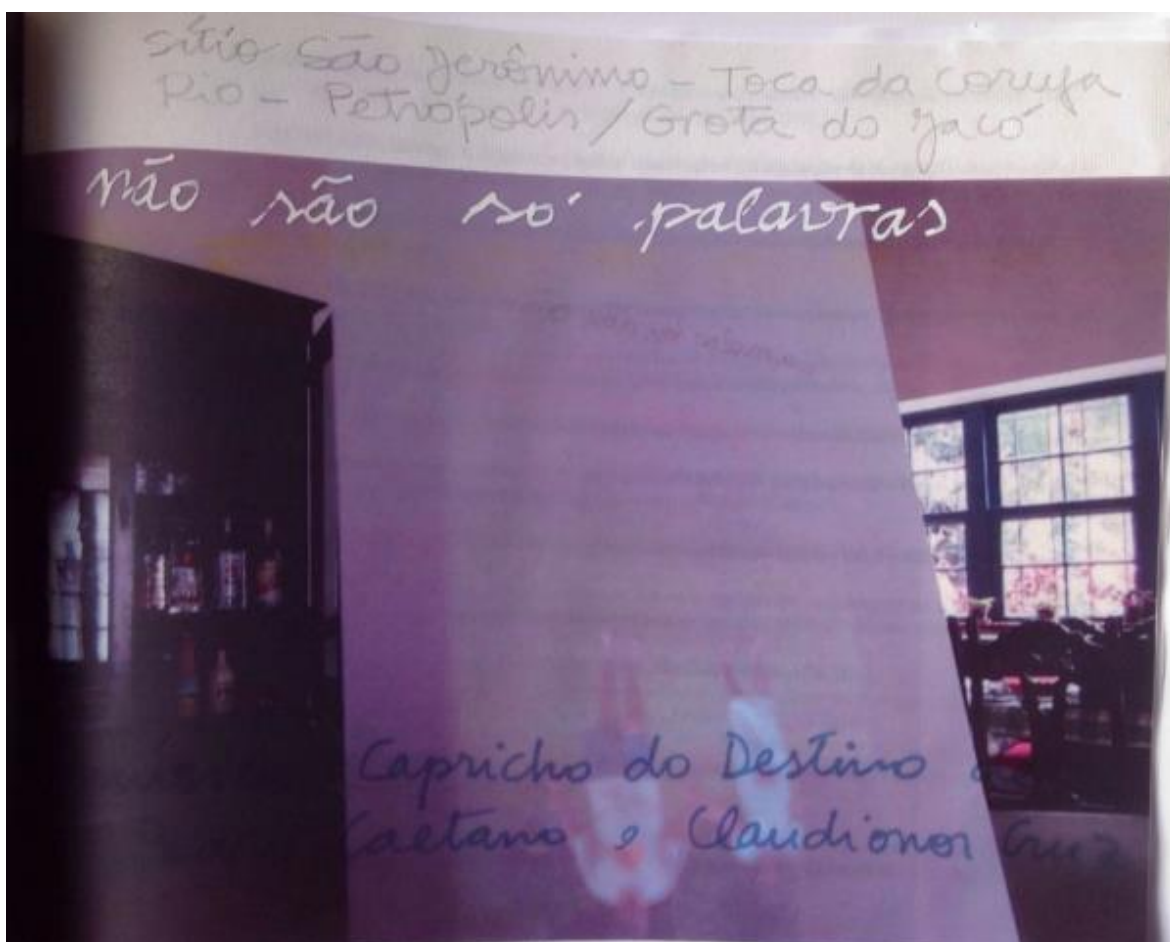 sítio São Jerônimo - Toca da Coruja
Rio - Petrópolis / Grota do Jacó
não são só palavras
Capricho do Destino
Caetano e Claudionor Cruz